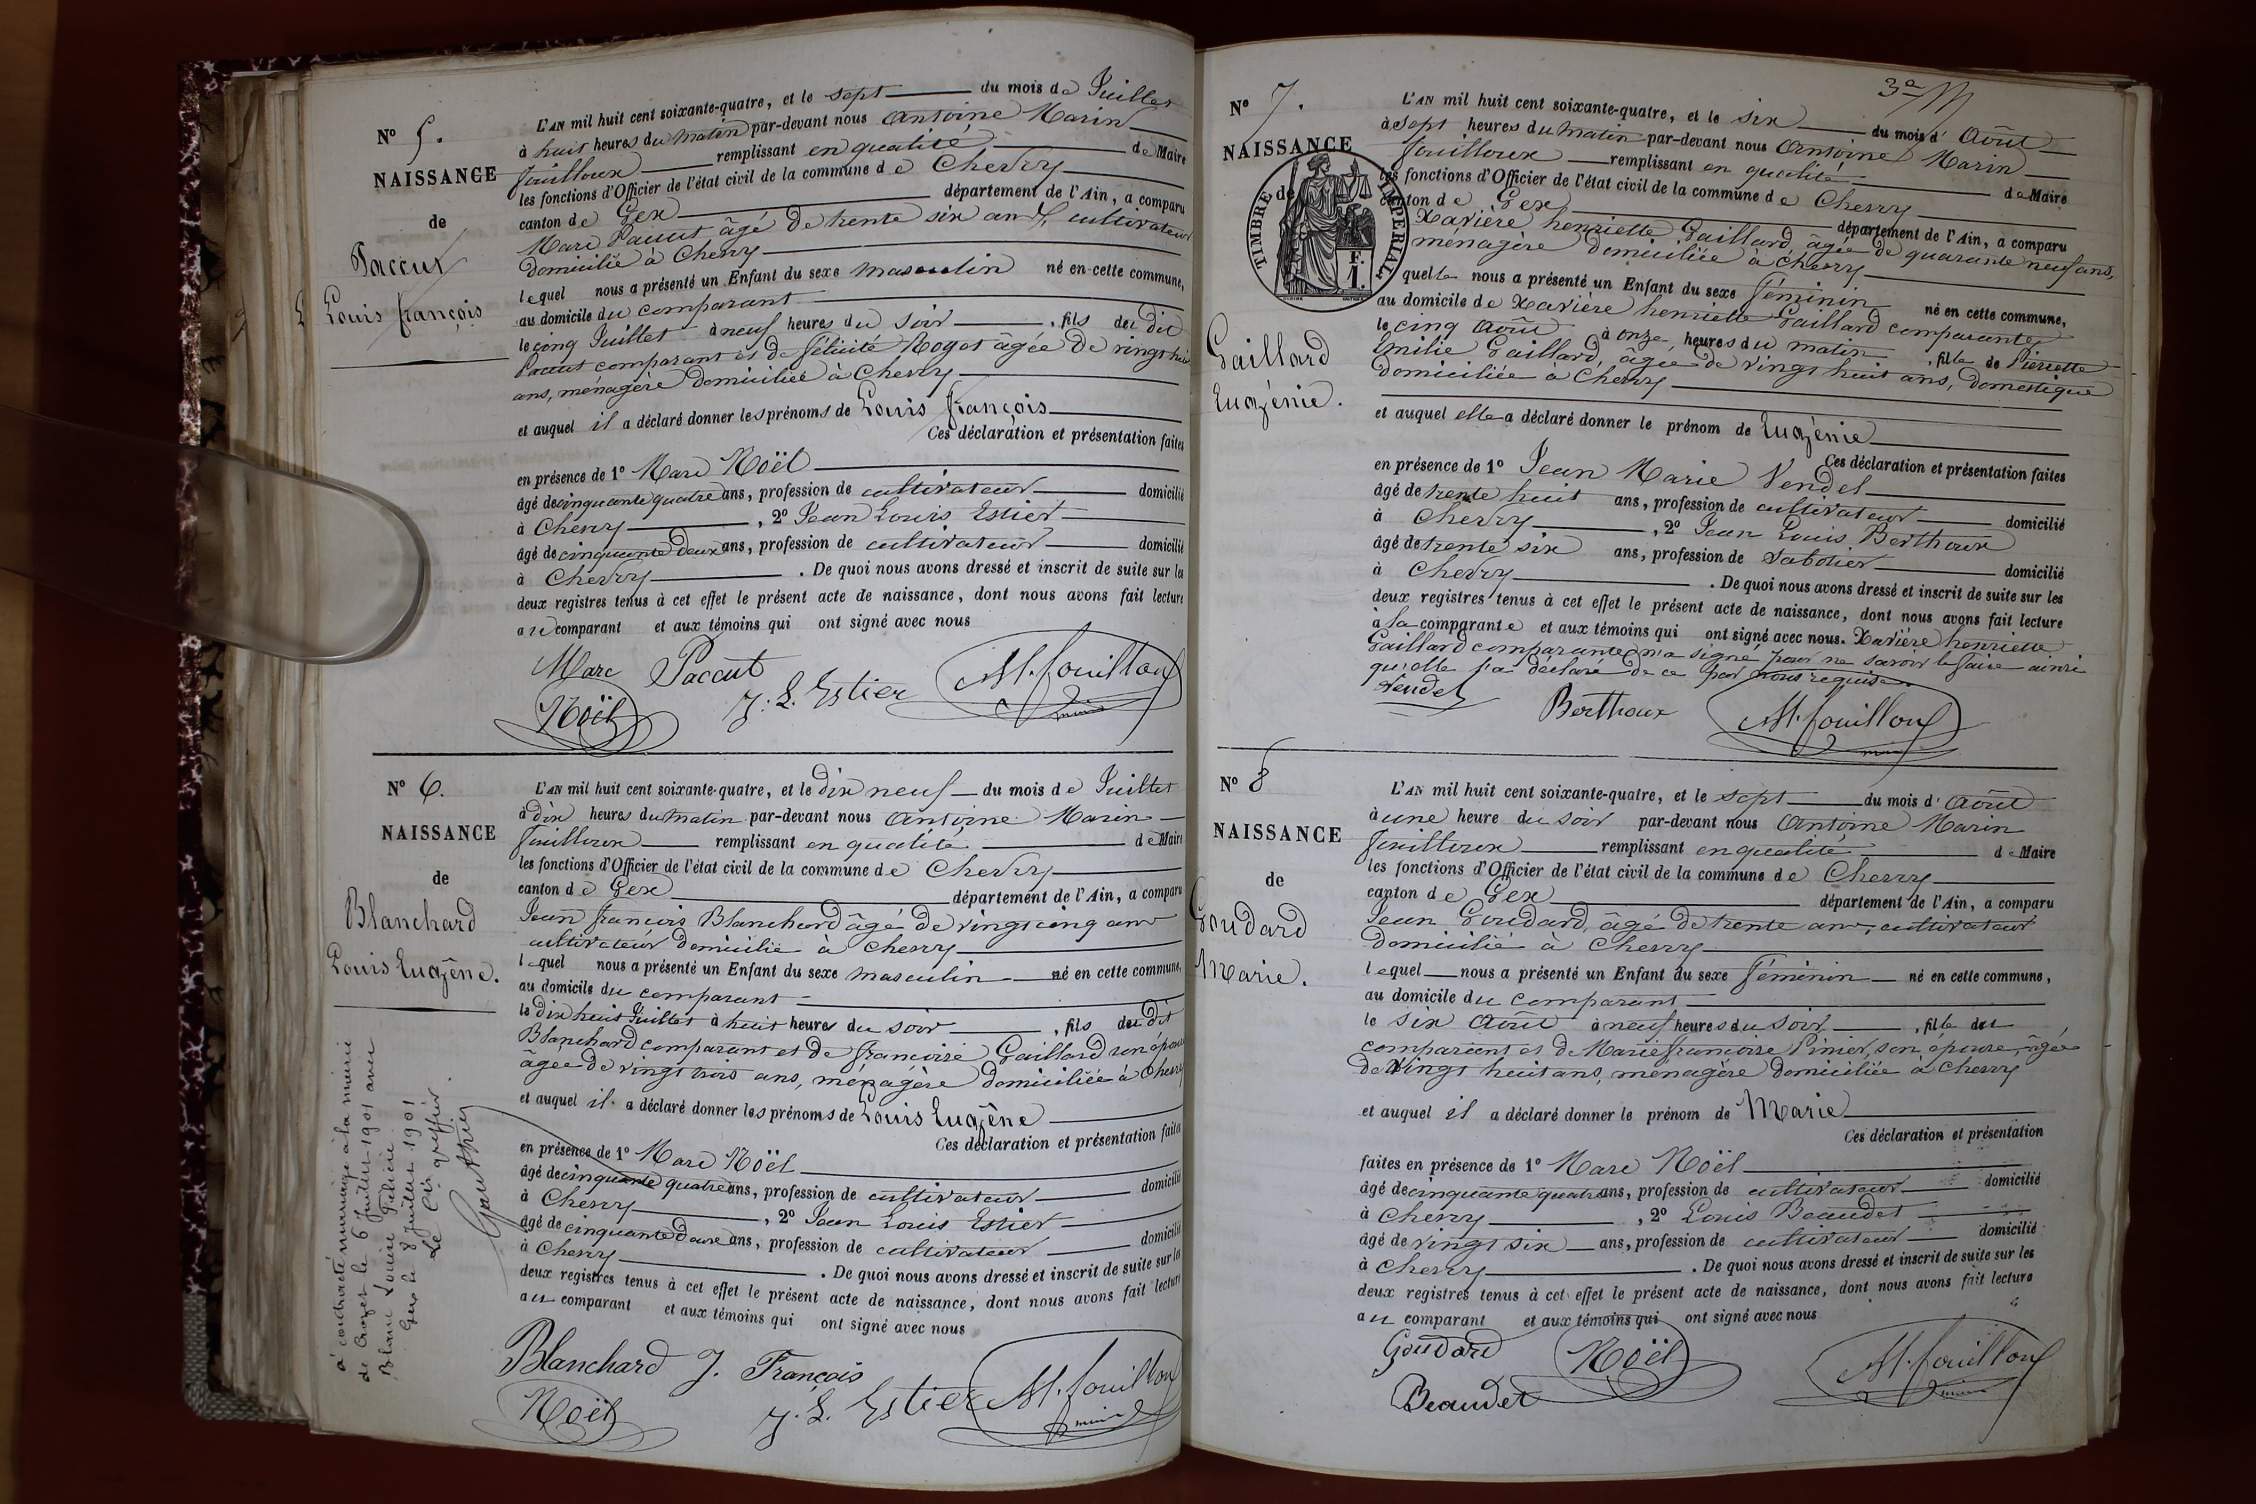 N° 5.
NAISSANCE
de
Paccut
Louis françois
L'AN mil huit cent soixante-quatre, et le sept du mois de Juillet
à huit heures du matin par-devant nous Antoine Marin
fouilloux remplissant en qualité de Maire
les fonctions d'Officier de l'état civil de la commune de Chevry
canton de Gex département de l'Ain, a comparu
Marc Paccut âgé de trente six ans, cultivateur
domicilié à Chevry
lequel nous a présenté un Enfant du sexe masculin né en cette commune,
au domicile du comparant
le cinq Juillet à neuf heures du soir, fils du dit
Paccut comparant et de félicité Noyot âgée de vingt huit
ans, ménagère domiciliée à Chevry
et auquel il a déclaré donner les prénoms de Louis françois
Ces déclaration et présentation faites
en présence de 1° Marc Noël
âgé de cinquante quatre ans, profession de cultivateur domicilié
à Chevry, 2° Jean Louis Estier
âgé de cinquante deux ans, profession de cultivateur domicilié
à Chevry. De quoi nous avons dressé et inscrit de suite sur les
deux registres tenus à cet effet le présent acte de naissance, dont nous avons fait lecture
au comparant et aux témoins qui ont signé avec nous
Marc Paccut
J. L. Estier
M. fouilloux
Noël
maire
N° 6.
NAISSANCE
de
Blanchard
Louis Eugêne.
a contracté mariage à la mairie
de Crozet le 6 Juillet 1901 avec
Blanc Louise
Gex le 8 Juillet 1901
Le Cis greffier
L'AN mil huit cent soixante-quatre, et le dix neuf du mois de Juillet
à dix heures du matin par-devant nous Antoine Marin
fouilloux remplissant en qualité de Maire
les fonctions d'Officier de l'état civil de la commune de Chevry
canton de Gex département de l'Ain, a comparu
Jean françois Blanchard âgé de vingt cinq ans
cultivateur domicilié à Chevry
lequel nous a présenté un Enfant du sexe masculin né en cette commune,
au domicile du comparant
le dix huit Juillet à huit heures du soir, fils du dit
Blanchard comparant et de françoise Gaillard son épouse
âgée de vingt trois ans, ménagère domiciliée à Chevry
et auquel il a déclaré donner les prénoms de Louis Eugêne
Ces déclaration et présentation faites
en présence de 1° Marc Noël
âgé de cinquante quatre ans, profession de cultivateur domicilié
à Chevry, 2° Jean Louis Estier
âgé de cinquante deux ans, profession de cultivateur domicilié
à Chevry. De quoi nous avons dressé et inscrit de suite sur les
deux registres tenus à cet effet le présent acte de naissance, dont nous avons fait lecture
au comparant et aux témoins qui ont signé avec nous
Blanchard J. François
Noël
J. L. Estier
M. fouilloux
maire
3e
N° 7.
NAISSANCE
de
TIMBRE IMPERIAL
F.
1.
Gaillard
Eugénie.
L'AN mil huit cent soixante-quatre, et le six du mois d'Août
à sept heures du matin par-devant nous Antoine Marin
fouilloux remplissant en qualité de Maire
les fonctions d'Officier de l'état civil de la commune de Chevry
canton de Gex département de l'Ain, a comparu
Xavière henriette Gaillard, âgée de quarante neuf ans,
ménagère domiciliée à Chevry
quelle nous a présenté un Enfant du sexe féminin né en cette commune,
au domicile de Xavière henriette Gaillard comparante,
le cinq Août à onze heures du matin, fille de Pierrette
Emilie Gaillard, âgée de vingt huit ans, domestique
domiciliée à Chevry
et auquel elle a déclaré donner le prénom de Eugénie
Ces déclaration et présentation faites
en présence de 1° Jean Marie Vendel
âgé de trente huit ans, profession de cultivateur domicilié
à Chevry, 2° Jean Louis Berthoux
âgé de trente six ans, profession de Sabotier domicilié
à Chevry. De quoi nous avons dressé et inscrit de suite sur les
deux registres tenus à cet effet le présent acte de naissance, dont nous avons fait lecture
à la comparante et aux témoins qui ont signé avec nous. Xavière henriette
Gaillard comparante n'a signé pour ne savoir le faire ainsi
qu'elle l'a déclaré de ce par nous requise.
Vendel
Berthoux
M. fouilloux
maire
N° 8
NAISSANCE
de
Goudard
Marie.
L'AN mil huit cent soixante-quatre, et le sept du mois d'Août
à une heure du soir par-devant nous Antoine Marin
fouilloux remplissant en qualité de Maire
les fonctions d'Officier de l'état civil de la commune de Chevry
canton de Gex département de l'Ain, a comparu
Jean Goudard, âgé de trente ans, cultivateur
domicilié à Chevry
lequel nous a présenté un Enfant du sexe féminin né en cette commune,
au domicile du comparant
le six Août à neuf heures du soir, fille du
comparant et de Marie françoise Pinier, son épouse, âgée
de vingt huit ans, ménagère domiciliée à Chevry
et auquel il a déclaré donner le prénom de Marie
Ces déclaration et présentation
faites en présence de 1° Marc Noël
âgé de cinquante quatre ans, profession de cultivateur domicilié
à Chevry, 2° Louis Beaudet
âgé de vingt six ans, profession de cultivateur domicilié
à Chevry. De quoi nous avons dressé et inscrit de suite sur les
deux registres tenus à cet effet le présent acte de naissance, dont nous avons fait lecture
au comparant et aux témoins qui ont signé avec nous
Goudard
Noël
M. fouilloux
maire
Beaudet